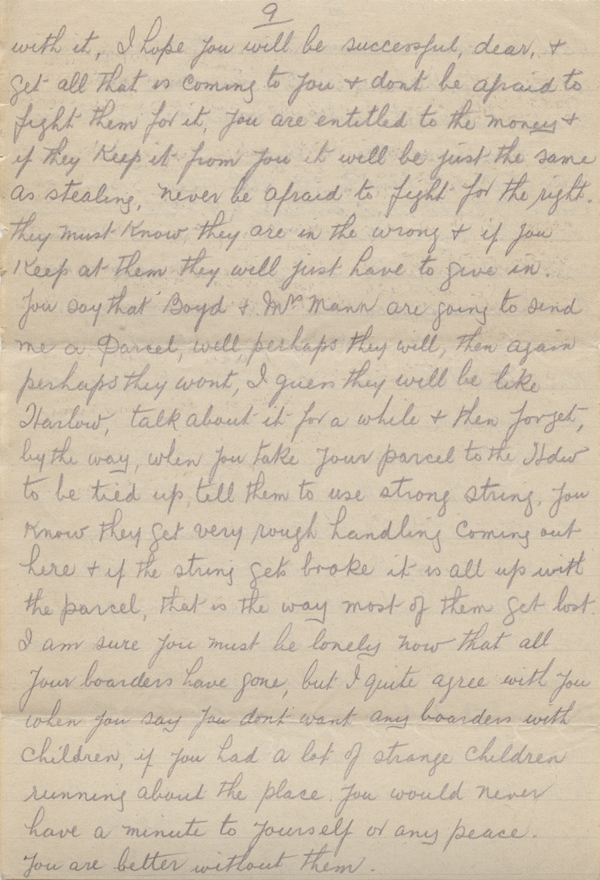 9
with it, I hope you will be successful, dear, +
get all that is coming to you + dont be afraid to
fight them for it, you are entitled to the money +
if they keep it from you it will be just the same
as stealing, never be afraid to fight for the right.
they must know they are in the wrong + if you
keep at them they will just have to give in.
You say that Boyd + Mrs Mann are going to send
me a Parcel, well, perhaps they will, then again
perhaps they wont, I guess they will be like
Harlow, talk about it for a while + then forget,
by the way, when you take your parcel to the Hdw
to be tied up, tell them to use strong string, you
know they get very rough handling coming out
here + if the string gets broke it is all up with
the parcel, that is the way most of them get lost.
I am sure you must be lonely now that all
your boarders have gone, but I quite agree with you
when you say you dont want any boarders with
children, if you had a lot of strange children
running about the place you would never
have a minute to yourself or any peace.
You are better without them.